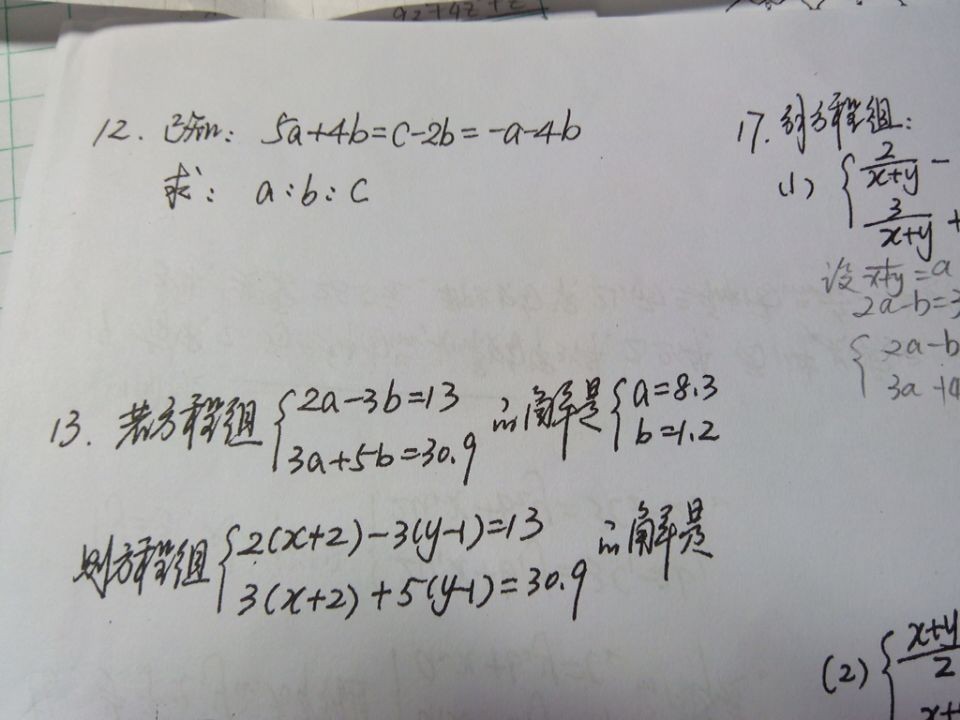 12. 已知: 5a+4b=c-2b=-a-4b
求: a:b:c
13. 若方程组{2a-3b=13
3a+5b=30.9
的解是{a=8.3
b=1.2
则方程组{2(x+2)-3(y-1)=13
3(x+2)+5(y-1)=30.9
的解是
17. 方程组:
(1) {2/(x+y) -
3/(x+y) +
设 1/(x+y)=a
2a-b=3
{2a-b
3a+4
(2) {(x+y)/2